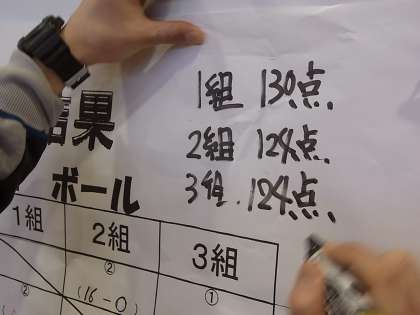 1組 130点
2組 124点
3組 124点
結果
ボール
1組 2組 3組
② ② ①
(16-0)